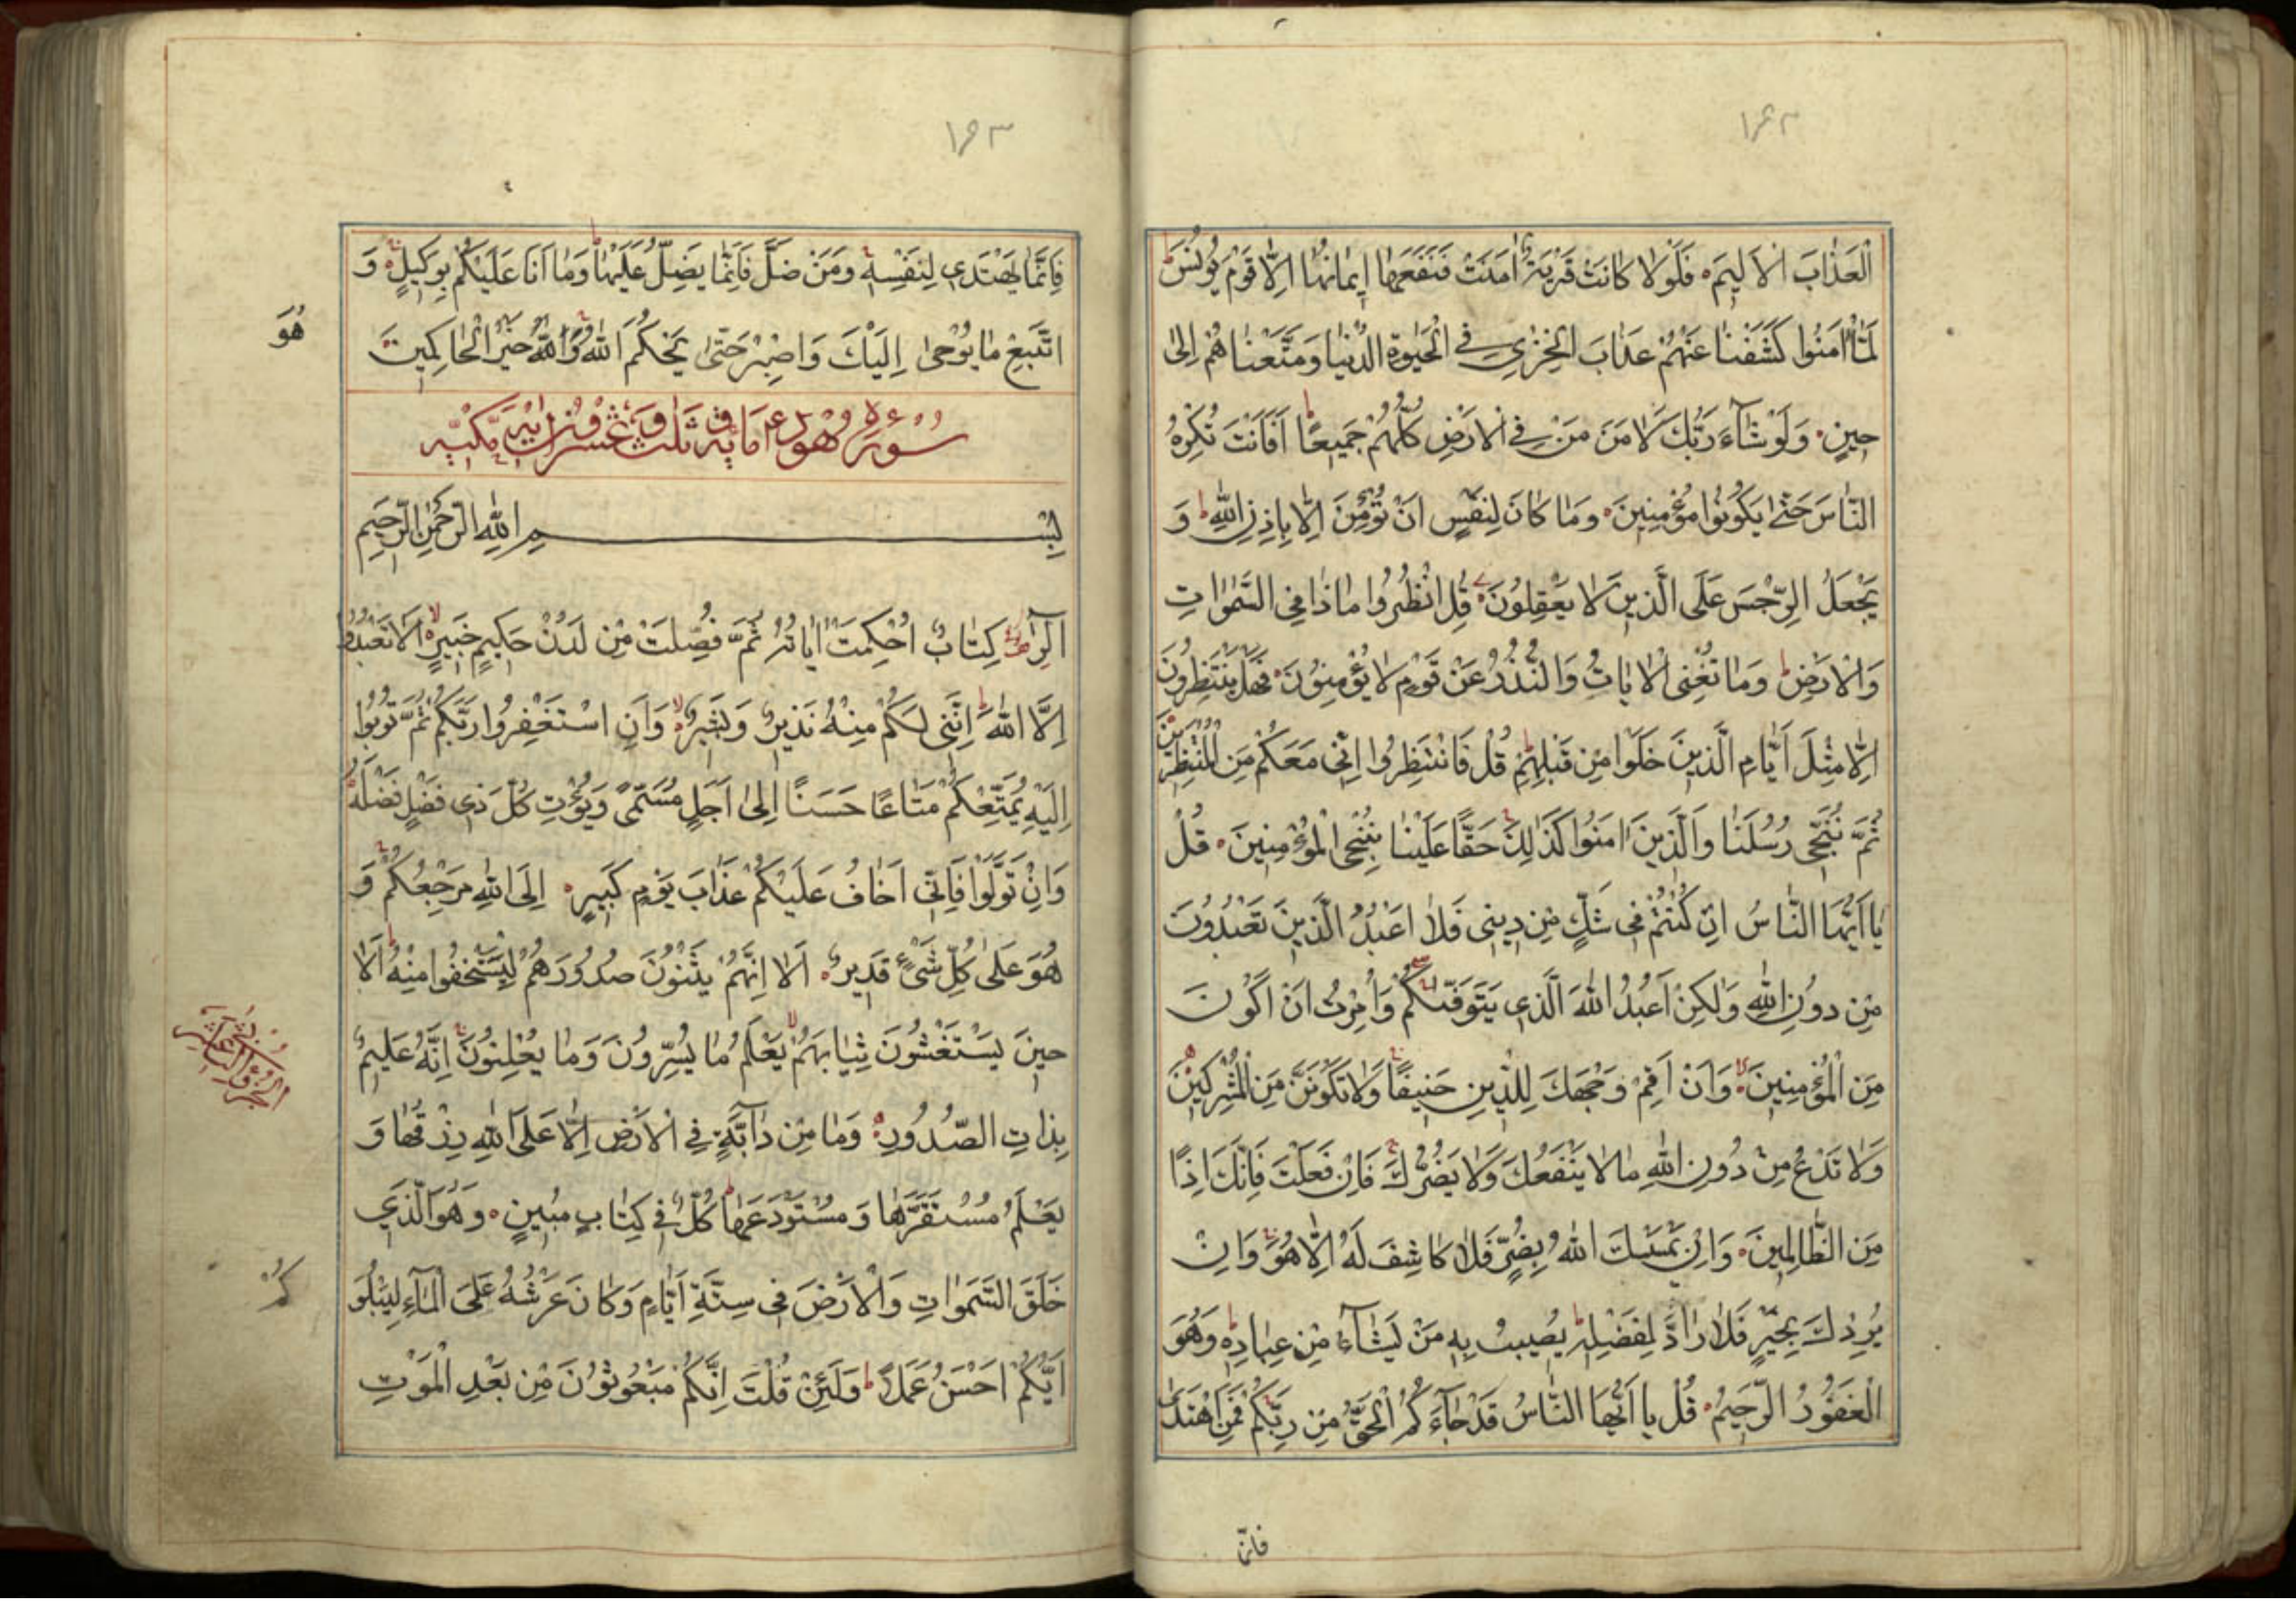 ١٩٢
الْعَذَابَ الْاَلِيمَ فَلَوْلَا كَانَتْ قَرْيَةٌ اٰمَنَتْ فَنَفَعَهَا اِيمَانُهَا اِلَّا قَوْمَ يُونُسَ
لَمَّا اٰمَنُوا كَشَفْنَا عَنْهُمْ عَذَابَ الْخِزْيِ فِي الْحَيٰوةِ الدُّنْيَا وَمَتَّعْنَاهُمْ اِلٰى
حِينٍ وَلَوْ شَآءَ رَبُّكَ لَاٰمَنَ مَنْ فِي الْاَرْضِ كُلُّهُمْ جَمِيعًا اَفَاَنْتَ تُكْرِهُ
النَّاسَ حَتّٰى يَكُونُوا مُؤْمِنِينَ وَمَا كَانَ لِنَفْسٍ اَنْ تُؤْمِنَ اِلَّا بِاِذْنِ اللّٰهِ وَ
يَجْعَلُ الرِّجْسَ عَلَى الَّذِينَ لَا يَعْقِلُونَ قُلِ انْظُرُوا مَاذَا فِي السَّمٰوَاتِ
وَالْاَرْضِ وَمَا تُغْنِي الْاٰيَاتُ وَالنُّذُرُ عَنْ قَوْمٍ لَا يُؤْمِنُونَ فَهَلْ يَنْتَظِرُونَ
اِلَّا مِثْلَ اَيَّامِ الَّذِينَ خَلَوْا مِنْ قَبْلِهِمْ قُلْ فَانْتَظِرُوا اِنِّي مَعَكُمْ مِنَ الْمُنْتَظِرِينَ
ثُمَّ نُنَجِّي رُسُلَنَا وَالَّذِينَ اٰمَنُوا كَذٰلِكَ حَقًّا عَلَيْنَا نُنْجِ الْمُؤْمِنِينَ قُلْ
يَا اَيُّهَا النَّاسُ اِنْ كُنْتُمْ فِي شَكٍّ مِنْ دِينِي فَلَا اَعْبُدُ الَّذِينَ تَعْبُدُونَ
مِنْ دُونِ اللّٰهِ وَلٰكِنْ اَعْبُدُ اللّٰهَ الَّذِي يَتَوَفّٰيكُمْ وَاُمِرْتُ اَنْ اَكُونَ
مِنَ الْمُؤْمِنِينَ وَاَنْ اَقِمْ وَجْهَكَ لِلدِّينِ حَنِيفًا وَلَا تَكُونَنَّ مِنَ الْمُشْرِكِينَ
وَلَا تَدْعُ مِنْ دُونِ اللّٰهِ مَا لَا يَنْفَعُكَ وَلَا يَضُرُّكَ فَاِنْ فَعَلْتَ فَاِنَّكَ اِذًا
مِنَ الظَّالِمِينَ وَاِنْ يَمْسَسْكَ اللّٰهُ بِضُرٍّ فَلَا كَاشِفَ لَهُ اِلَّا هُوَ وَاِنْ
يُرِدْكَ بِخَيْرٍ فَلَا رَادَّ لِفَضْلِهِ يُصِيبُ بِهِ مَنْ يَشَآءُ مِنْ عِبَادِهِ وَهُوَ
الْغَفُورُ الرَّحِيمُ قُلْ يَا اَيُّهَا النَّاسُ قَدْ جَآءَكُمُ الْحَقُّ مِنْ رَبِّكُمْ فَمَنِ اهْتَدٰى
فانّ
١٩٣
فَاِنَّمَا يَهْتَدِي لِنَفْسِهِ وَمَنْ ضَلَّ فَاِنَّمَا يَضِلُّ عَلَيْهَا وَمَا اَنَا عَلَيْكُمْ بِوَكِيلٍ وَ
اتَّبِعْ مَا يُوحٰى اِلَيْكَ وَاصْبِرْ حَتّٰى يَحْكُمَ اللّٰهُ وَاللّٰهُ خَيْرُ الْحَاكِمِينَ
هُوَ
سُورَةُ هُودٍ مِائَة وَثَلٰث وَعِشْرُونَ اٰيَة مَكِّيَّة
بِسْمِ اللّٰهِ الرَّحْمٰنِ الرَّحِيمِ
الٓرٰ كِتَابٌ اُحْكِمَتْ اٰيَاتُهُ ثُمَّ فُصِّلَتْ مِنْ لَدُنْ حَكِيمٍ خَبِيرٍ اَلَّا تَعْبُدُوا
اِلَّا اللّٰهَ اِنَّنِي لَكُمْ مِنْهُ نَذِيرٌ وَبَشِيرٌ وَاَنِ اسْتَغْفِرُوا رَبَّكُمْ ثُمَّ تُوبُوا
اِلَيْهِ يُمَتِّعْكُمْ مَتَاعًا حَسَنًا اِلٰى اَجَلٍ مُسَمًّى وَيُؤْتِ كُلَّ ذِي فَضْلٍ فَضْلَهُ
وَاِنْ تَوَلَّوْا فَاِنِّي اَخَافُ عَلَيْكُمْ عَذَابَ يَوْمٍ كَبِيرٍ اِلَى اللّٰهِ مَرْجِعُكُمْ وَ
هُوَ عَلٰى كُلِّ شَيْءٍ قَدِيرٌ اَلَا اِنَّهُمْ يَثْنُونَ صُدُورَهُمْ لِيَسْتَخْفُوا مِنْهُ اَلَا
حِينَ يَسْتَغْشُونَ ثِيَابَهُمْ يَعْلَمُ مَا يُسِرُّونَ وَمَا يُعْلِنُونَ اِنَّهُ عَلِيمٌ
بِذَاتِ الصُّدُورِ وَمَا مِنْ دَآبَّةٍ فِي الْاَرْضِ اِلَّا عَلَى اللّٰهِ رِزْقُهَا وَ
يَعْلَمُ مُسْتَقَرَّهَا وَمُسْتَوْدَعَهَا كُلٌّ فِي كِتَابٍ مُبِينٍ وَهُوَ الَّذِي
خَلَقَ السَّمٰوَاتِ وَالْاَرْضَ فِي سِتَّةِ اَيَّامٍ وَكَانَ عَرْشُهُ عَلَى الْمَآءِ لِيَبْلُوَ
كُمْ
اَيُّكُمْ اَحْسَنُ عَمَلًا وَلَئِنْ قُلْتَ اِنَّكُمْ مَبْعُوثُونَ مِنْ بَعْدِ الْمَوْتِ